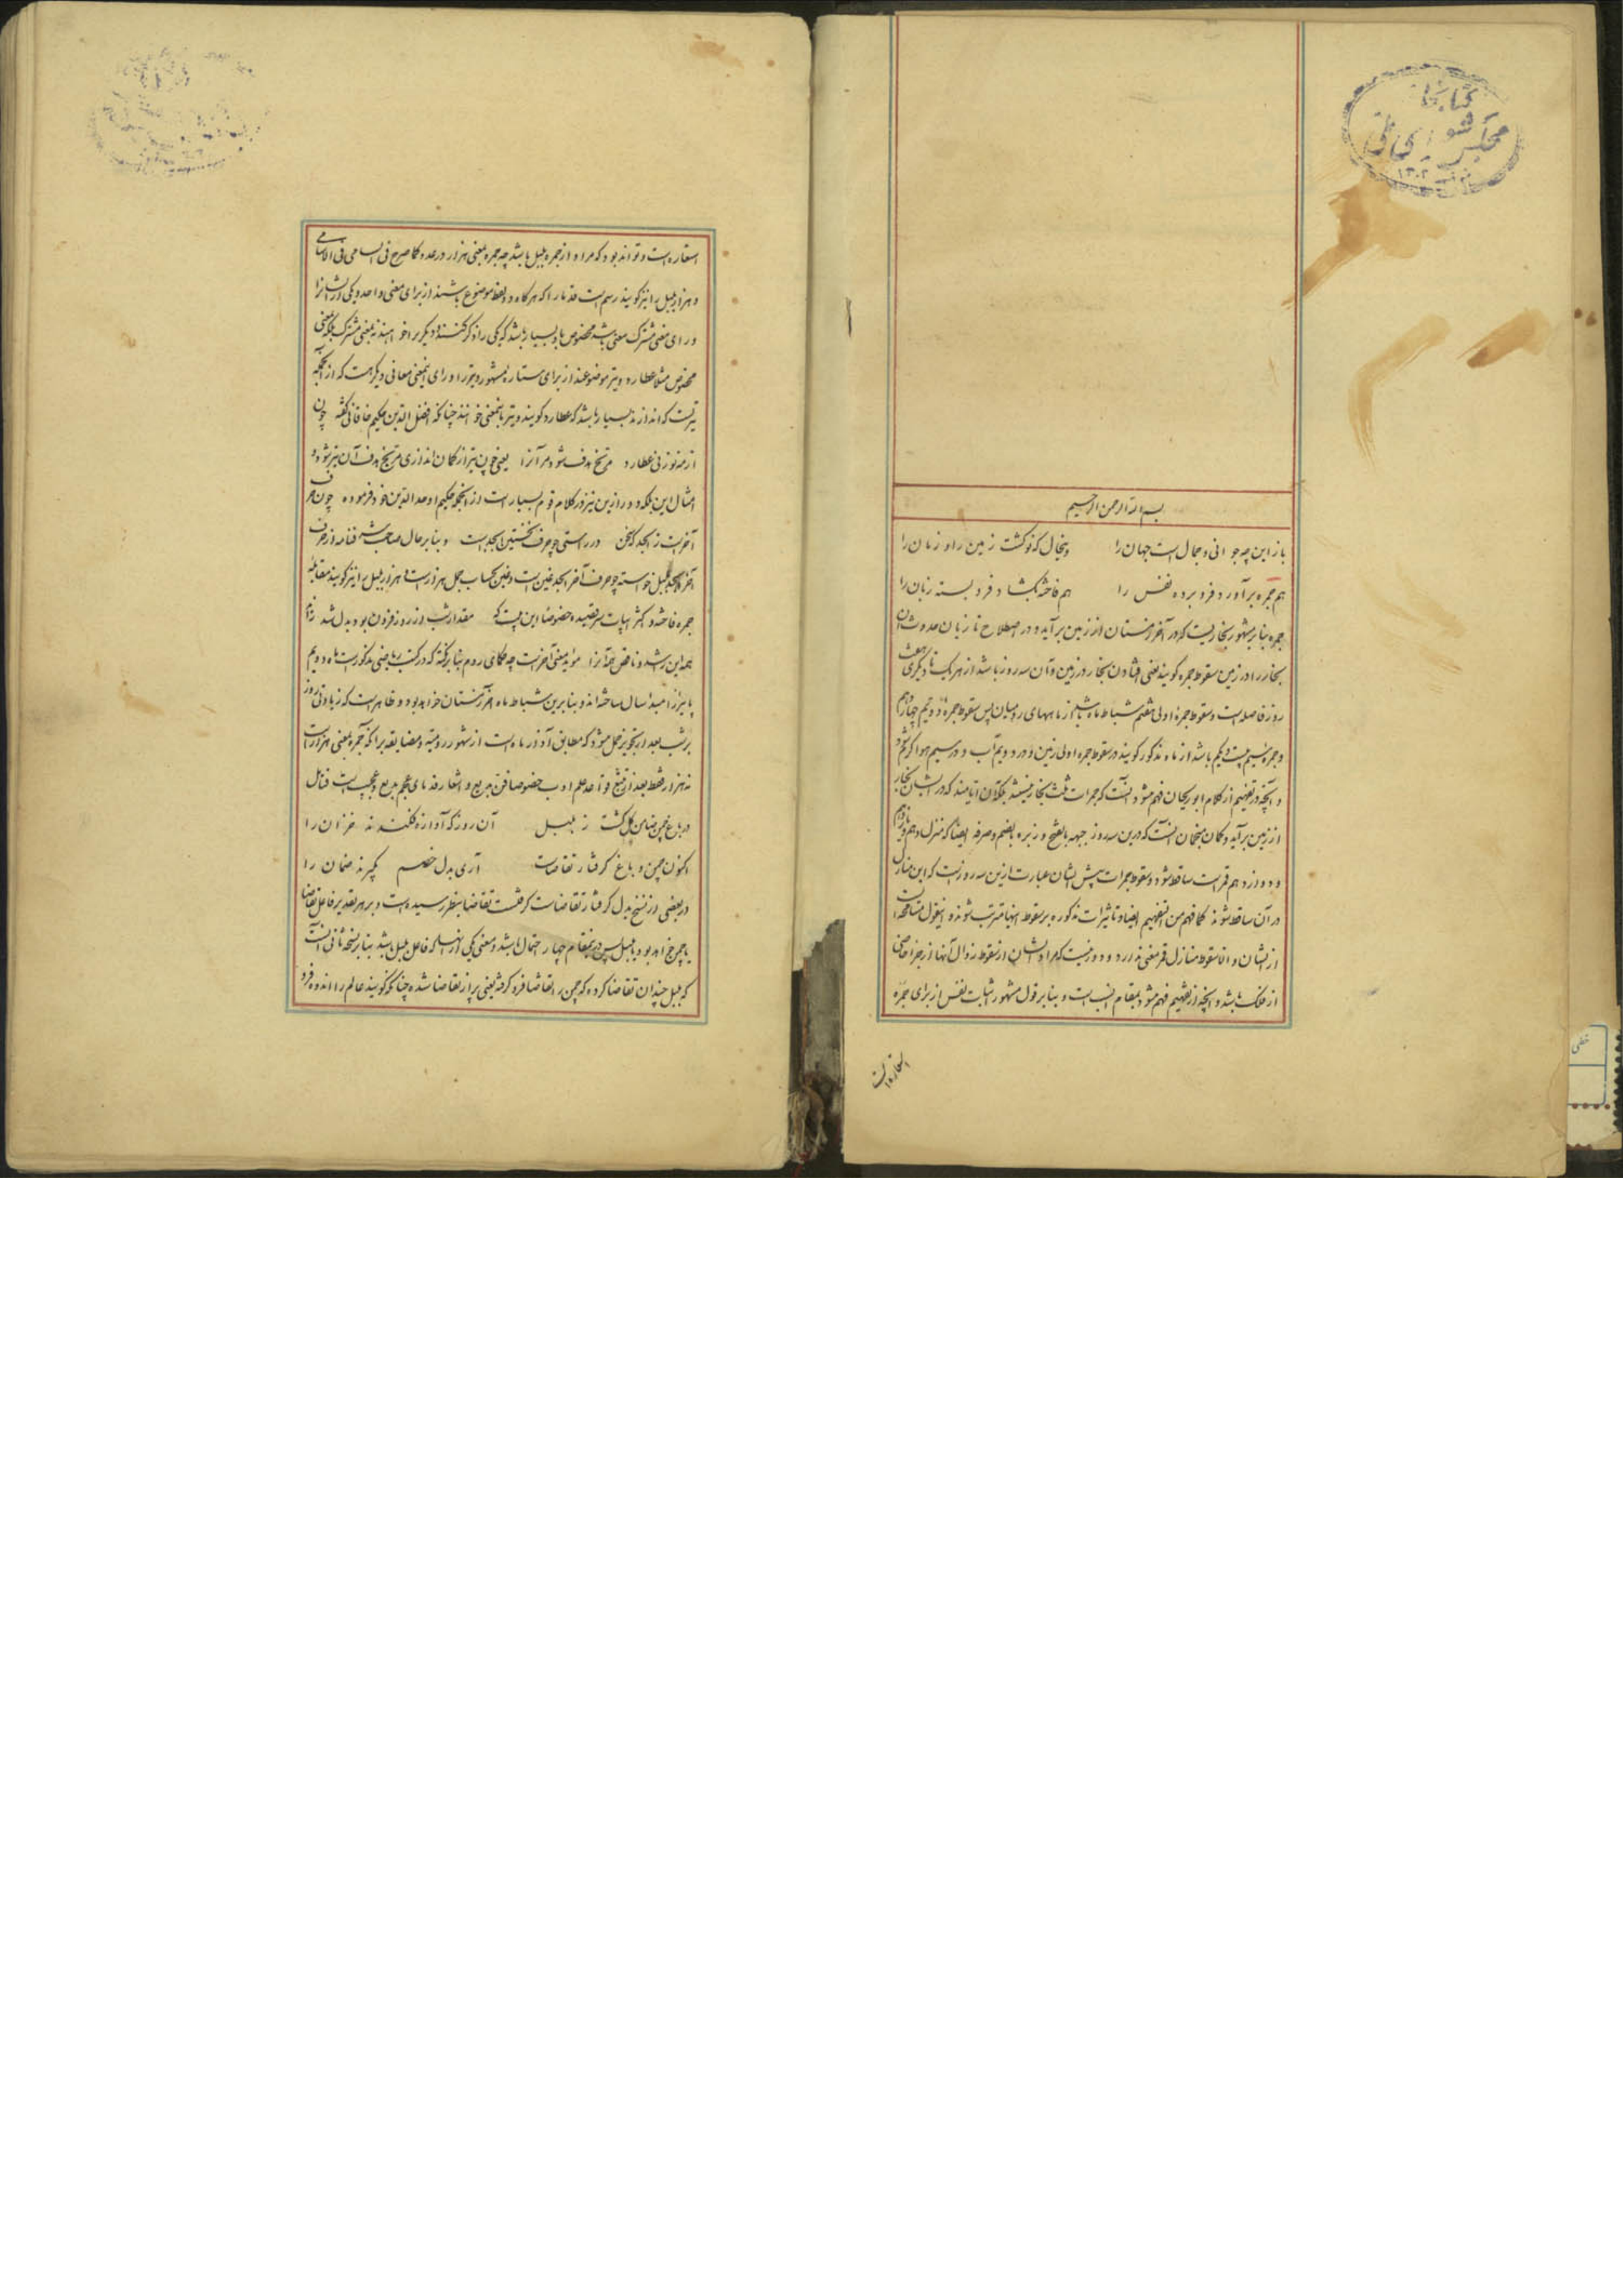 کتابخانه
مجلس شورای ملی
۱۳۰۲
بسم الله الرحمن الرحیم
باز این چه جوانی و جمال است جهان را وینحال که نو کشت زمین را و زمان را
هم جمره برآورد فرو برده نفس را هم فاخته بکشاد فرو بسته زبان را
جمره بنا بر مشهور بخاریست که در آخر زمستان از زمین برآید و در اصطلاح تازیان حدوث آن
بخار را در زمین سقوط جمره کویند یعنی افتادن بخار در زمین و آن سه روز باشد از هر یک تا دیکری هفت
روز فاصله است و سقوط جمرهٔ اولی هفتم شباط ماه باشد از ماههای رومیان پس سقوط جمره دویم چهاردهم
و جمره سیم بیست و یکم باشد از ماه مذکور کویند در سقوط جمره اولی زمین و در دویم آب و در سیم هوا کرم شود
و آنچه در تفهیم از کلام ابوریحان فهم میشود آنست که جمرات ثلث بخار نیستند بلکه آن ایامند که در ایشان بخار
از زمین برآید و کمان منجمان آنست که درین سه روز جبهه بالفتح و زبره بالضم و صرفه ایضا که منزل دهم و یازدهم
و دوازدهم قمر است ساقط شود و سقوط جمرات پیش ایشان عبارت ازین سه روز است که این منازل
در آن ساقط شوند کما فهم من التفهیم ایضا و تاثیرات مذکوره بر سقوط اینها مترتب شوند و اینقول مسامحه است
از ایشان و الا سقوط منازل قمر معنی ندارد و دور نیست که مراد ایشان از سقوط زوال آنها از جزء خاصی
از فلک باشد و آنچه از تفهیم فهم میشود بمقام انسب است و بنا بر قول مشهور اثبات نفس از برای جمره
استعاره است
استعاره است و تواند بود که مراد از جمره بلبل باشد چه جمره بمعنی هزار در عدد کما صرح فی السامی فی الاسامی
و هزار بلبل را نیز کویند رسم است قدما را که هر کاه دو لفظ موضوع باشند از برای معنی واحد و یکی از ایشانرا
ورای معنی مشترک معنی باشد مخصوص باو بسیار باشد که یکی را ذکر کنند و دیکری را خواهند نه بمعنی مشترک بلکه بمعنی
مخصوص مثلا عطارد و تیر موضوعند از برای ستاره مشهور و تیر را ورای اینمعنی معانی دیکر هست که از آنجمله
تیریست که اندازند بسیار باشد که عطارد کویند و تیر باینمعنی خواهند چنانکه افضل الدین حکیم خاقانی کفته چون
از مه نو زنی عطارد مریخ هدف شود مر آنرا یعنی چون تیر از کمان اندازی مریخ هدف آن تیر شود و
امثال این بلکه دورتر ازین نیز در کلام قوم بسیار است از آنجمله حکیم اوحد الدین خود فرموده چون حرف
آخر است ز ابجد که سخن در راستی چو حرف نخستین ابجد است و بنا بر حال صاحب شرفنامه از حرف
آخر ابجد بلبل خواسته چو حرف آخر ابجد غین است و غین بحساب جمل هزار است و هزار بلبل را نیز کویند مقابله
جمره فاخته و اکثر ابیات سر قصیده خصوصا این بیت که مقدار شب از روز فزون بود و بدل شد زائد
همه این شد و ناقص همه آنرا مؤید معنی آخر است چه حکمای روم بنا برکفته که در کتب ریاضی مذکور است ماه دویم
پائیز را مبدا سال ساخته اند و بنا برین شباط ماه آخر زمستان خواهد بود و ظاهر است که زیادتی روز
بر شب بعد از تحویل حمل میشود که مطابق آذر ماه است از شهور رومیه و مضایقه برانکه جمره بمعنی هزار است
نه هزار فقط بعد از تتبع قواعد علم ادب خصوصا فن بدیع و اشعار قدمای عجم بدیع و عجیب است فتامل
در باغ چمن ضامن کل کشت ز بلبل آن روز که آوازه فکندند خزان را
اکنون چمن و باغ کرفتار تقاضاست آری بدل خصم بکیرند ضمان را
در بعضی از نسخ بدل کرفتار تقاضاست کرفتست تقاضا بنظر رسیده است و بر هر تقدیر فاعل تقاضا
یا چمن خواهد بود یا بلبل پس درینمقام چهار احتمال باشد و معنی یکی از انها که فاعل بلبل باشد بنا بر نسخه ثانی آنست
که بلبل چندان تقاضا کرده که چمن را تقاضا فرو کرفته یعنی پر از تقاضا شده چنانکه کویند عالم را اندوه فرو